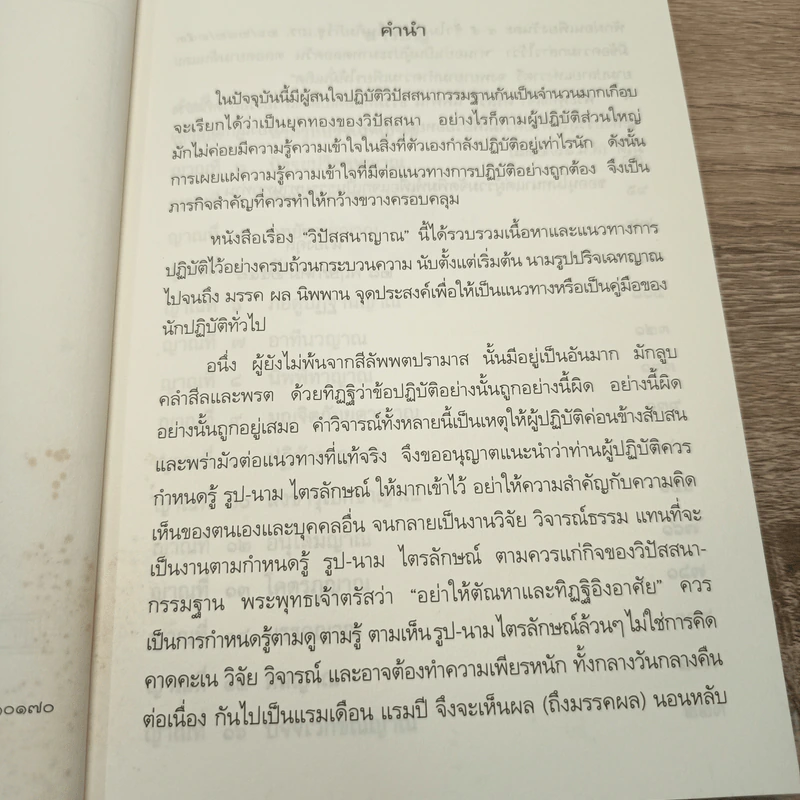 คำนำ
ในปัจจุบันนี้มีผู้สนใจปฏิบัติวิปัสสนากรรมฐานกันเป็นจำนวนมากเกือบ
จะเรียกได้ว่าเป็นยุคทองของวิปัสสนา อย่างไรก็ตามผู้ปฏิบัติส่วนใหญ่
มักไม่ค่อยมีความรู้ความเข้าใจในสิ่งที่ตัวเองกำลังปฏิบัติอยู่เท่าไรนัก ดังนั้น
การเผยแผ่ความรู้ความเข้าใจที่มีต่อแนวทางการปฏิบัติอย่างถูกต้อง จึงเป็น
ภารกิจสำคัญที่ควรทำให้กว้างขวางครอบคลุม
หนังสือเรื่อง “วิปัสสนาญาณ” นี้ได้รวบรวมเนื้อหาและแนวทางการ
ปฏิบัติไว้อย่างครบถ้วนกระบวนความ นับตั้งแต่เริ่มต้น นามรูปปริจเฉทญาณ
ไปจนถึง มรรค ผล นิพพาน จุดประสงค์เพื่อให้เป็นแนวทางหรือเป็นคู่มือของ
นักปฏิบัติทั่วไป
อนึ่ง ผู้ยังไม่พ้นจากสีลัพพตปรามาส นั้นมีอยู่เป็นอันมาก มักลูบ
คลำสีลและพรต ด้วยทิฏฐิว่าข้อปฏิบัติอย่างนั้นถูกอย่างนี้ผิด อย่างนี้ผิด
อย่างนั้นถูกอยู่เสมอ คำวิจารณ์ทั้งหลายนี้เป็นเหตุให้ผู้ปฏิบัติค่อนข้างสับสน
และพร่ามัวต่อแนวทางที่แท้จริง จึงขออนุญาตแนะนำว่าท่านผู้ปฏิบัติควร
กำหนดรู้ รูป-นาม ไตรลักษณ์ ให้มากเข้าไว้ อย่าให้ความสำคัญกับความคิด
เห็นของตนเองและบุคคลอื่น จนกลายเป็นงานวิจัย วิจารณ์ธรรม แทนที่จะ
เป็นงานตามกำหนดรู้ รูป-นาม ไตรลักษณ์ ตามควรแก่กิจของวิปัสสนา-
กรรมฐาน พระพุทธเจ้าตรัสว่า “อย่าให้ตัณหาและทิฏฐิอิงอาศัย” ควร
เป็นการกำหนดรู้ตามดู ตามรู้ ตามเห็น รูป-นาม ไตรลักษณ์ล้วนๆ ไม่ใช่การคิด
คาดคะเน วิจัย วิจารณ์ และอาจต้องทำความเพียรหนัก ทั้งกลางวันกลางคืน
ต่อเนื่อง กันไปเป็นแรมเดือน แรมปี จึงจะเห็นผล (ถึงมรรคผล) นอนหลับ
๑๐๑๗๐